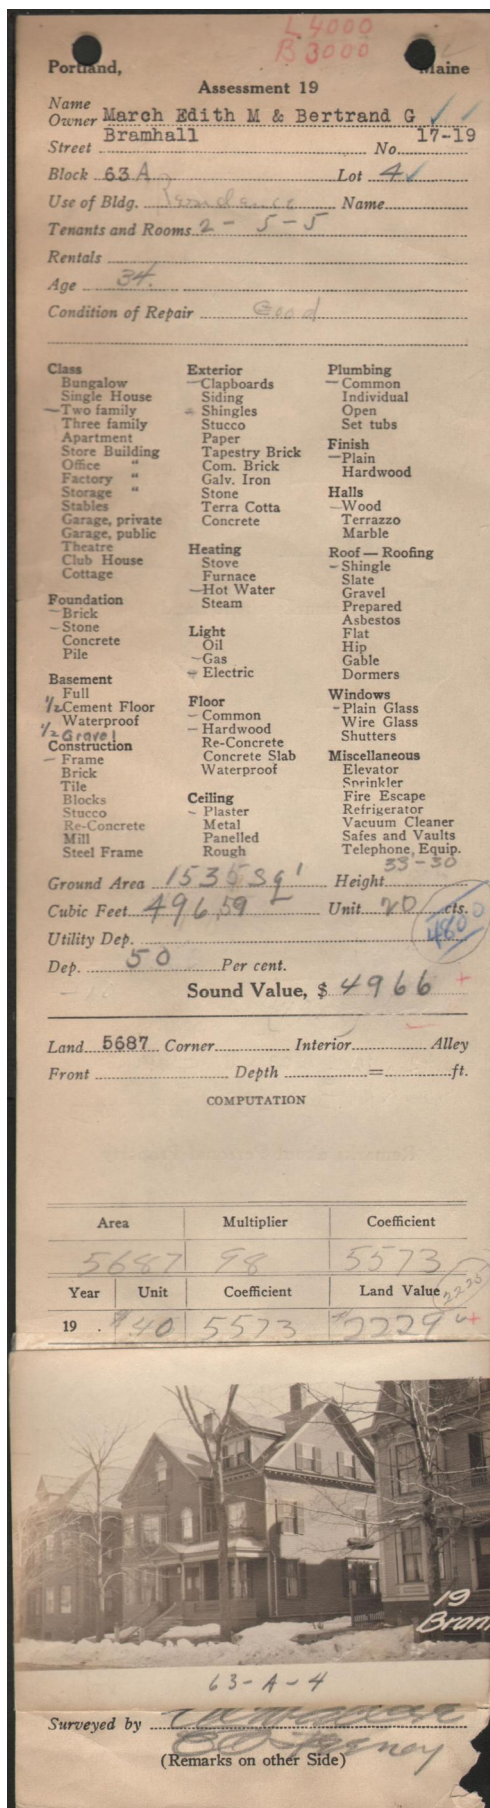 L 4000
B 3000
Portland, Maine
Assessment 19
Name
Owner March Edith M & Bertrand G
Street Bramhall No. 17-19
Block 63 A Lot 4
Use of Bldg. Residence Name
Tenants and Rooms 2 - 5 - 5
Rentals
Age 34.
Condition of Repair Good
Class
Bungalow
Single House
Two family
Three family
Apartment
Store Building
Office "
Factory "
Storage "
Stables
Garage, private
Garage, public
Theatre
Club House
Cottage
Foundation
Brick
Stone
Concrete
Pile
Basement
Full
1/2 Cement Floor
Waterproof
1/2 Gravel
Construction
Frame
Brick
Tile
Blocks
Stucco
Re-Concrete
Mill
Steel Frame
Exterior
Clapboards
Siding
Shingles
Stucco
Paper
Tapestry Brick
Com. Brick
Galv. Iron
Stone
Terra Cotta
Concrete
Heating
Stove
Furnace
Hot Water
Steam
Light
Oil
Gas
Electric
Floor
Common
Hardwood
Re-Concrete
Concrete Slab
Waterproof
Ceiling
Plaster
Metal
Panelled
Rough
Plumbing
Common
Individual
Open
Set tubs
Finish
Plain
Hardwood
Halls
Wood
Terrazzo
Marble
Roof — Roofing
Shingle
Slate
Gravel
Prepared
Asbestos
Flat
Hip
Gable
Dormers
Windows
Plain Glass
Wire Glass
Shutters
Miscellaneous
Elevator
Sprinkler
Fire Escape
Refrigerator
Vacuum Cleaner
Safes and Vaults
Telephone, Equip.
Ground Area 1535 sq' Height 33-30
Cubic Feet 49659 Unit 20 cts.
Utility Dep. 4800
Dep. 50 Per cent.
Sound Value, $ 4966 +
Land 5687 Corner Interior Alley
Front Depth = ft.
COMPUTATION
Area Multiplier Coefficient
5687 98 5573
Year Unit Coefficient Land Value 2225
19 . $40 5573 $2229 +
19
Bram
63-A-4
Surveyed by
(Remarks on other Side)